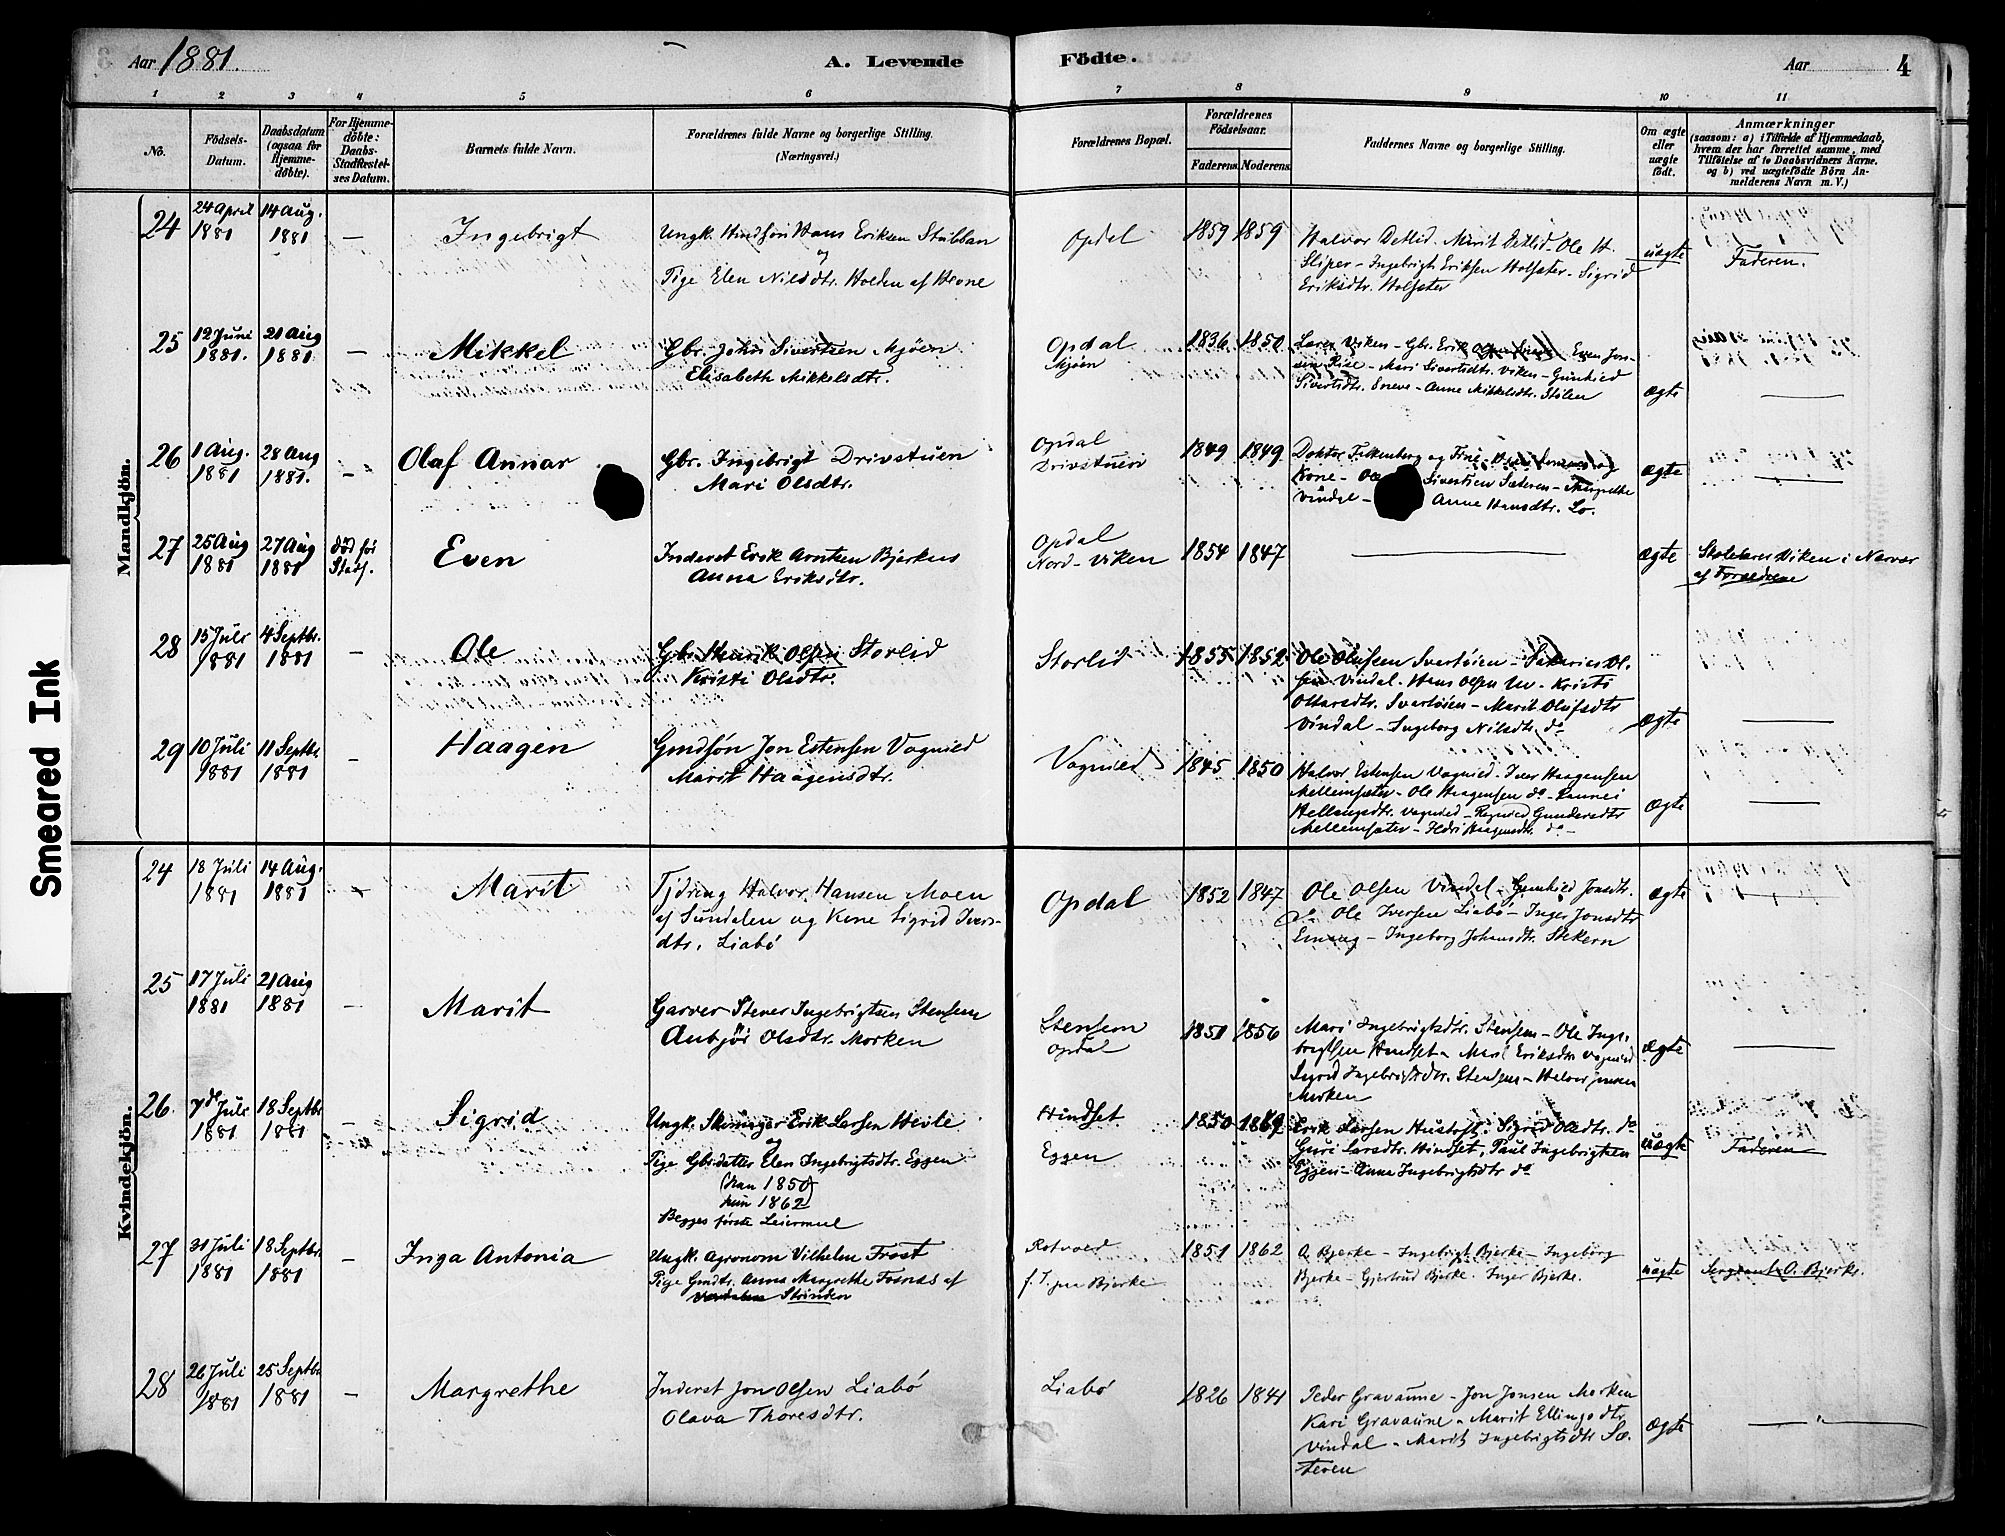 Aar 1881.
A. Levende Födte.
Aar
4
1 2 3 4 5 6 7 8 9 10 11
No.
Födsels-
Datum.
Daabsdatum
(ogsaa for
Hjemme-
döbte).
For Hjemme-
döbte:
Daabs-
Stadfæstel-
ses Datum.
Barnets fulde Navn.
Forældrenes fulde Navne og borgerlige Stilling.
(Næringsvei.)
Forældrenes Bopæl.
Forældrenes
Födselsaar.
Faderens. Moderens.
Faddernes Navne og borgerlige Stilling.
Om ægte
eller
uægte
født.
Anmærkninger
(saasom: a) i Tilfælde af Hjemmedaab,
hvem der har forrettet samme, med
Tilföielse af to Daabsvidners Navne.
og b) ved uægtefödte Börn An-
melderens Navn m. V.)
Mandkjön.
24
24 April
1881
14 Aug.
1881
—
Ingebrigt
Ungk. Hans Eriksen Stubban
og
Pige Elen Nilsdtr. Holden af Hevne
Opdal
1859 1859
Halvor Detlid. Marit Detlid - Ole H.
Sliper - Ingebrigt Eriksen Holseter - Sigrid
Eriksdtr. Holseter
uægte
Faderen.
25
12 Juni
1881.
21 Aug
1881
—
Mikkel
Gbr. John Sivertsen Mjøen
Elisabeth Mikkelsdtr.
Opdal
Mjøen
1836 1850
Lærer Viken - Gbr. Erik Even Jon-
sen Rise - Mari Sivertsdtr. Viken - Gunhild
Sivertsdtr. - Anne Mikkelsdtr. Stølen
ægte
26
1 Aug.
1881
28 Aug
1881.
—
Olaf Annar
Gbr. Ingebrigt Drivstuen
Mari Olsdtr.
Opdal
Drivstuen
1849 1849
Doktor Falkenberg og
Kone - Sivertsen Sæteren - Margrethe
Vindal - Anne Hansdtr. Lo.
ægte
27
25 Aug
1881
27 Aug
1881
død før
Stadf.
Even
Inderst Erik Arntsen Bjerkens
Anna Eriksdtr.
Opdal
Nord-Viken
1854 1847
ægte
Skolelærer Viken i Nærvær
af Forældrene
28
15 Juli
1881
4 Septbr.
1881
—
Ole
Gbr. Henrik Olsen Storlid
Kristi Olsdtr.
Storlid
1855 1852
Ole Olufsen Svertøien - Ol-
sen Vindal - Hans Olsen - Kristi
Svertøien - Marit Olufsdtr
Vindal - Ingeborg Nilsdtr. do
ægte
29
10 Juli
1881
11 Septbr.
1881
—
Haagen
Gmdsøn Jon Estensen Vognild
Marit Haagensdtr.
Vognild
1845 1850
Halvor Estensen Vognild - Iver Haagensen
Mellemsæter - Ole Haagensen do - Rannei
Vognild - Ragnild Gundersdtr
Mellemsæter - Haagensdtr. do -
ægte
Kvindekjön.
24
18 Juli
1881
14 Aug.
1881
Marit
Halvor Hansen Moen
af Sundalen og Kone Sigrid Ivers-
dtr. Liabø
Opdal
1852 1847
Ole Olsen Vindal - Gunhild Jonsdtr.
do Ole Iversen Liabø - Inger Jonsdtr
- Ingeborg Johansdtr. Stekern
ægte
25
17 Juli
1881
21 Aug
1881
—
Marit
Garver Stener Ingebrigtsen Stensem
Anbjør Olsdtr. Morken
Stensem
Opdal
1851 1856
Mari Ingebrigtsdtr. Stensem - Ole Inge-
brigtsen Hindset - Eriksdtr Vognild
Sigrid Ingebrigtsdtr. Stensem - Halvor
Morken
ægte
26.
7de Juli
1881
18 Septbr
1881
—
Sigrid
Ungk. Erik Larsen Hevle
og
Pige Gbrdatter Elen Ingebrigtsdtr. Eggen
(han 1850
hun 1862)
Begges første Leiermaal
Hindset
Eggen
1850 1862
Erik Larsen - Sigrid Olsdtr. do
Guri Larsdtr. Hindset, Paul Ingebrigtsen
Eggen - Anne Ingebrigtsdtr do
uægte
Faderen
27
31 Juli
1881
18 Septbr.
1881
—
Inga Antonia
Ungk. Agronom Vilhelm Frost
Pige Gmdtr. Anna Margrethe Fosnæs af
Strinden
Rotvold
f. T. paa Bjerke
1851 1862
O. Bjerke - Ingebrigt Bjerke - Ingeborg
Bjerke - Gjertrud Bjerke. Inger Bjerke.
uægte
Sergeant O. Bjerke.
28
26 Juli
1881
25 Septbr
1881
—
Margrethe
Inderst Jon Olsen Liabø
Olava Thoresdtr.
Liabø
1826 1841
Peder Gravaune - Jon Jonsen Morken
Kari Gravaune - Marit Ellingsdtr
Vindal - Marit Ingebrigtsdtr Sæ-
teren
ægte
Smeared Ink